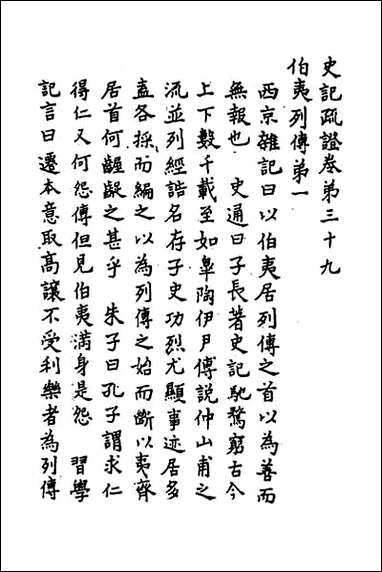 史記疏證卷第三十九
伯夷列傳第一
西京雜記曰以伯夷居列傳之首以為善而
無報也　史通曰子長著史記馳騖窮古今
上下數千載至如皋陶伊尹傅說仲山甫之
流並列經誥名存子史功烈尤顯事迹居多
盍各採而編之以為列傳之始而斷以夷齊
居首何齷齪之甚乎　朱子曰孔子謂求仁
得仁又何怨傳但見伯夷滿身是怨　習學
記言曰遷本意取高讓不受利樂者為列傳